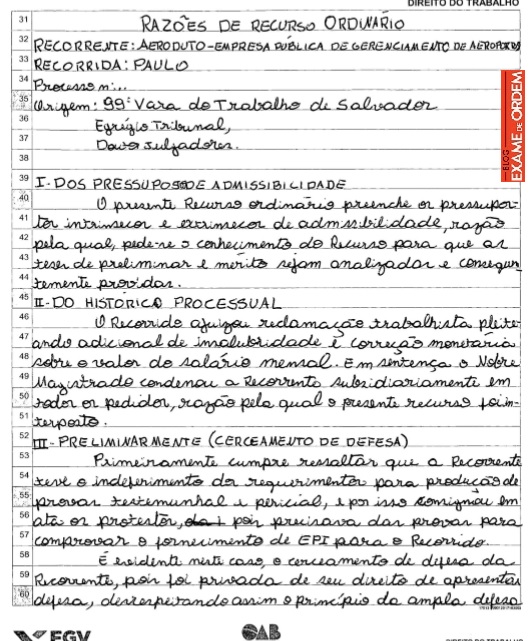 DIREITO DO TRABALHO
31 RAZÕES DE RECURSO ORDINÁRIO
32 RECORRENTE: AERODUTO-EMPRESA PÚBLICA DE GERENCIAMENTO DE AEROPORTOS
33 RECORRIDA: PAULO
34 Processo nº...
35 Origem: 99ª Vara do Trabalho de Salvador
36 Egrégio Tribunal,
37 Doutos Julgadores.
38
39 I- DOS PRESSUPOSTOS DE ADMISSIBILIDADE
40 O presente Recurso ordinário preenche os pressupos-
41 tos intrínsecos e extrínsecos de admissibilidade, razão
42 pela qual, pede-se o conhecimento do Recurso para que as
43 teses de preliminar e mérito sejam analizadas e consequen
44 temente providas.
45 II- DO HISTÓRICO PROCESSUAL
46 O Recorrido ajuizou reclamação trabalhista pleite-
47 ando adicional de insalubridade e correção monetária
48 sobre o valor do salário mensal. Em sentença o Nobre
49 Magistrado condenou a Recorrente subsidiariamente em
50 todos os pedidos, razão pela qual o presente recurso foi in-
51 terposto.
52 III- PRELIMINARMENTE (CERCEAMENTO DE DEFESA)
53 Primeiramente cumpre ressaltar que a Recorrente
54 teve o indeferimento dos requerimentos para produção de
55 provas testemunhal e pericial, e por isso consignou em
56 ata os protestos, pois precisava das provas para
57 comprovar o fornecimento de EPI para o Recorrido.
58 É evidente neste caso, o cerceamento de defesa da
59 Recorrente, pois foi privada de seu direito de apresentar
60 defesa, desrespeitando assim o princípio da ampla defesa
BLOG
EXAME DE ORDEM
FGV
OAB
DIREITO DO TRABALHO